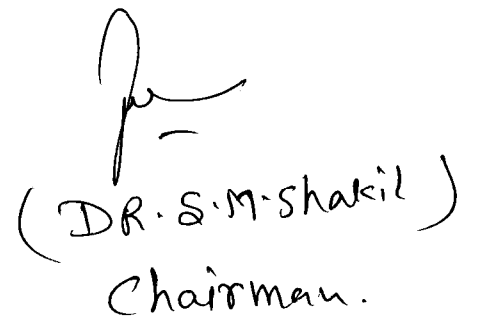 (DR. S.M. Shakil)
Chairman.